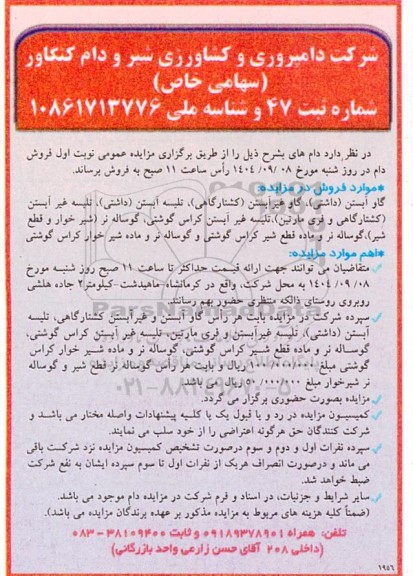 شرکت دامپروری و کشاورزی شیر و دام کنگاور
(سهامی خاص)
شماره ثبت ۴۷ و شناسه ملی ۱۰۸۶۱۷۱۳۷۷۶
در نظر دارد دام های بشرح ذیل را از طریق برگزاری مزایده عمومی نوبت اول فروش
دام در روز شنبه مورخ ۱۴۰۴/۰۹/۰۸ رأس ساعت ۱۱ صبح به فروش برساند.
*موارد فروش در مزایده:
گاو آبستن (داشتی)، گاو غیرآبستن (کشتارگاهی)، تلیسه آبستن (داشتی)، تلیسه غیر آبستن
(کشتارگاهی و فری مارتین)، تلیسه غیر آبستن کراس گوشتی، گوساله نر (شیر خوار و قطع
شیر)، گوساله نر و ماده قطع شیر کراس گوشتی و گوساله نر و ماده شیر خوار کراس گوشتی
*اهم موارد مزایده:
متقاضیان می توانند جهت ارائه قیمت حداکثر تا ساعت ۱۱ صبح روز شنبه مورخ
۱۴۰۴/۰۹/۰۸ به محل شرکت، واقع در کرمانشاه- ماهیدشت -کیلومتر۲ جاده هلشی
روبروی روستای ذالکه منتظری حضور بهم رسانند.
سپرده شرکت در مزایده بابت هر راس گاو آبستن و غیرآبستن کشتارگاهی، تلیسه
آبستن (داشتی)، تلیسه غیرآبستن و فری مارتین، تلیسه غیر آبستن کراس گوشتی،
گوساله نر و ماده قطع شیر کراس گوشتی، گوساله نر و ماده شیر خوار کراس
گوشتی مبلغ ۱۰۰/۰۰۰/۰۰۰ ریال و بابت هر راس گوساله نر قطع شیر و گوساله
نر شیرخوار مبلغ ۵۰/۰۰۰/۰۰۰ ریال می باشد.
مزایده بصورت حضوری برگزار می گردد.
کمیسیون مزایده در رد و یا قبول یک یا کلیه پیشنهادات واصله مختار می باشد و
شرکت کنندگان حق هرگونه اعتراضی را از خود سلب می نمایند.
سپرده نفرات اول و دوم و سوم درصورت تشخیص کمسیون مزایده نزد شرکت باقی
می ماند و درصورت انصراف هریک از نفرات اول تا سوم سپرده ایشان به نفع شرکت
ضبط خواهد شد.
سایر شرایط و جزئیات، در اسناد و فرم شرکت در مزایده دام موجود می باشد.
(ضمناً کلیه هزینه های مربوط به مزایده مذکور بر عهده برندگان مزایده می باشد).
تلفن: همراه ۰۹۱۸۹۳۷۸۹۰۱ و ثابت ۳۸۱۰۹۴۰۰-۰۸۳
(داخلی ۲۰۸ آقای حسن زارعی واحد بازرگانی)
۱۹۴۶